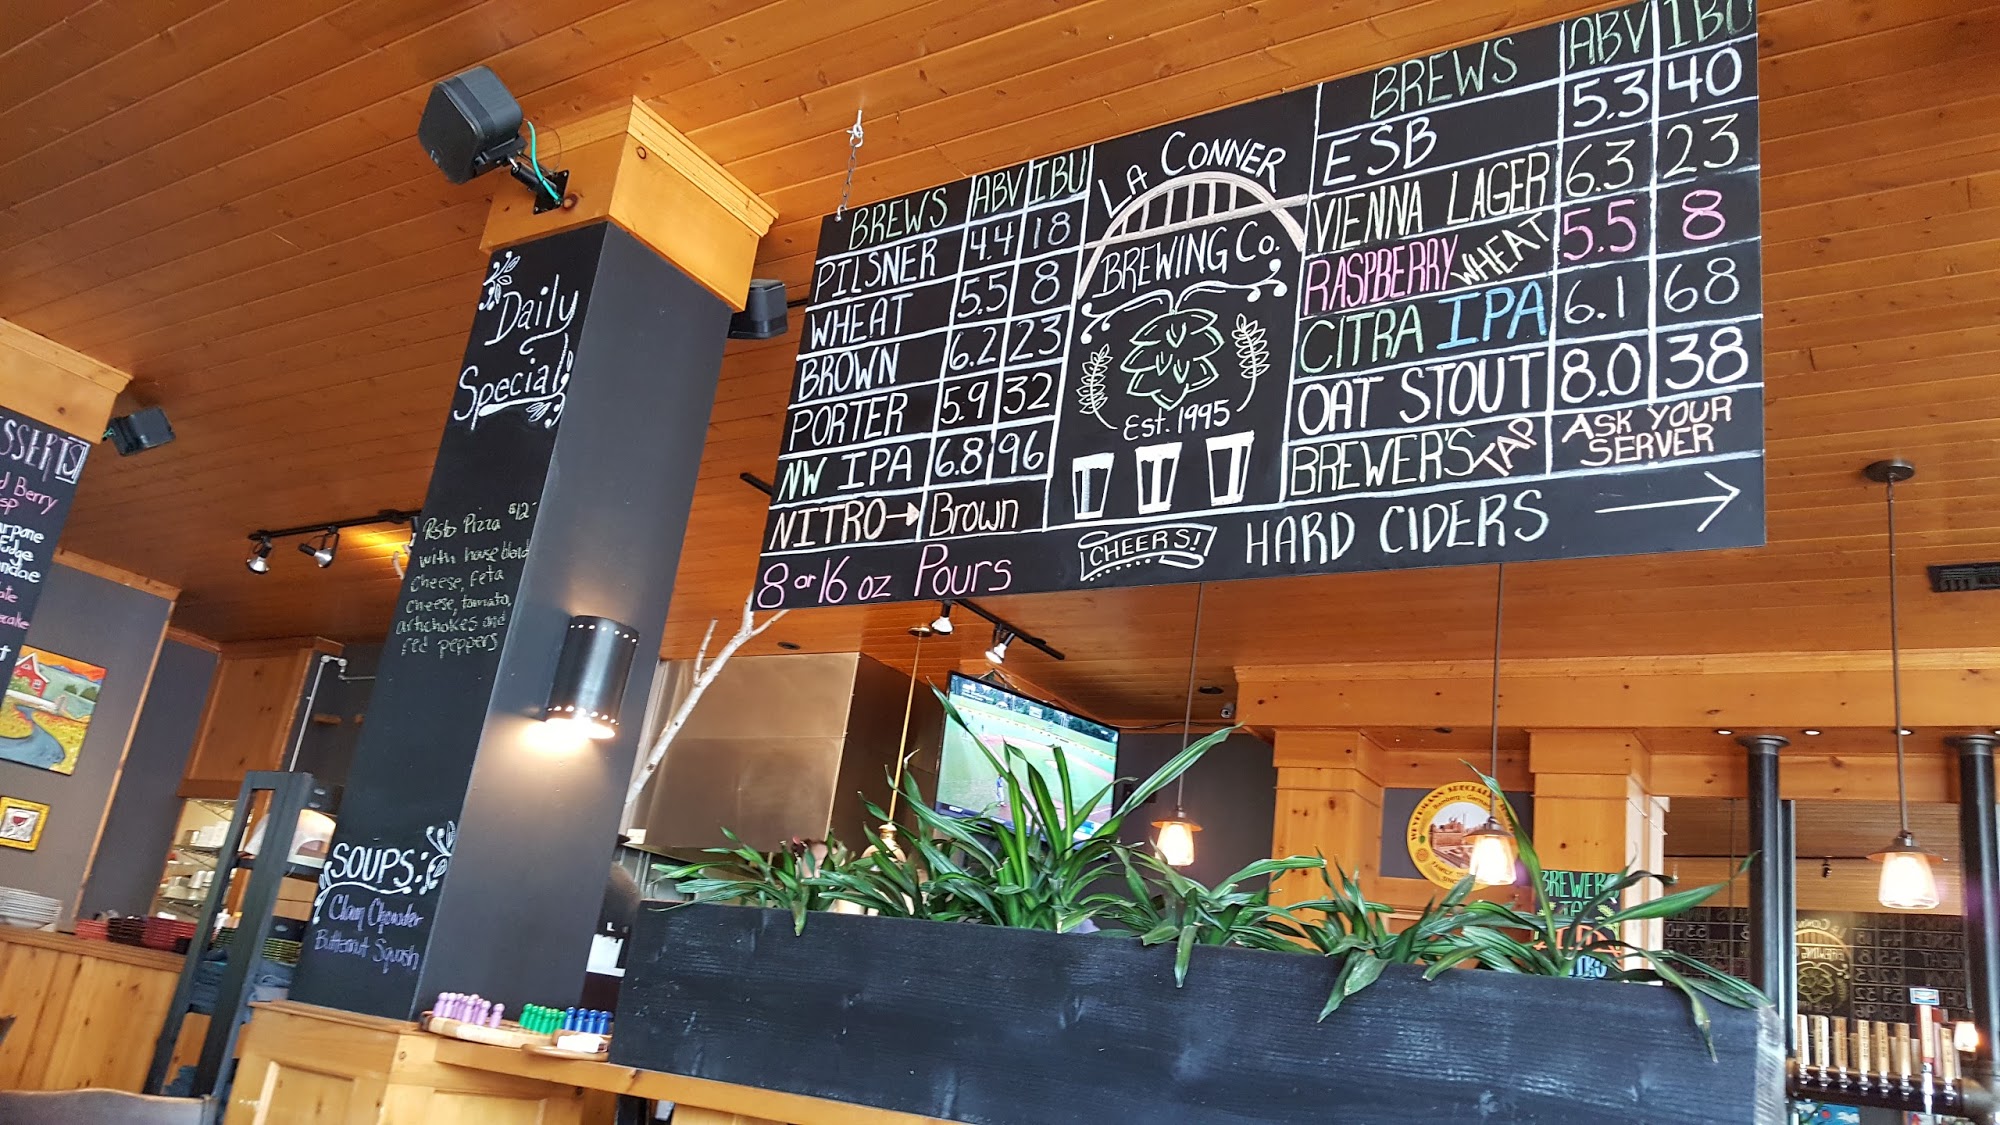 SSERTS
d Berry
sp
Fudge
Daily
Special
Pizza $12-
with house blend
cheese, feta
cheese, tomato,
artichokes and
red peppers
SOUPS:
Clam Chowder
Butternut Squash
BREWS ABV IBU
PILSNER 4.4 18
WHEAT 5.5 8
BROWN 6.2 23
PORTER 5.9 32
NW IPA 6.8 96
NITRO→ Brown
8 or 16 oz Pours
LA CONNER
BREWING CO.
Est. 1995
CHEERS!
BREWS ABV IBU
ESB 5.3 40
VIENNA LAGER 6.3 23
RASPBERRY WHEAT 5.5 8
CITRA IPA 6.1 68
OAT STOUT 8.0 38
BREWER'S TAP ASK YOUR
SERVER
HARD CIDERS →
Bamberg - Germany
BREWERS
TAP